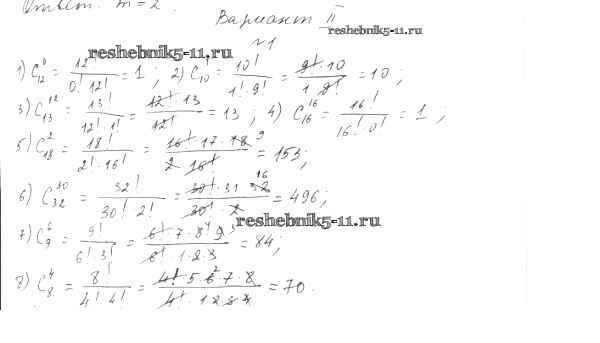 Ответ. m = 2.
Вариант II
reshebnik5-11.ru
№1
reshebnik5-11.ru
1) C₁₂⁰ = 12! / 0! 12! = 1; 2) C₁₀¹ = 10! / 1! 9! = 9! · 10 / 1 9! = 10;
3) C₁₃¹² = 13! / 12! 1! = 12! · 13 / 12! = 13; 4) C₁₆¹⁶ = 16! / 16! · 0! = 1;
5) C₁₈² = 18! / 2! · 16! = 16! · 17 · 18 9 / 2 16! = 153;
6) C₃₂³⁰ = 32! / 30! 2! = 30! · 31 · 32 16 / 30! · 2 = 496;
reshebnik5-11.ru
7) C₉⁶ = 9! / 6! 3! = 6! · 7 · 8 4 9 3 / 6! · 1 · 2 · 3 = 84;
8) C₈⁴ = 8! / 4! 4! = 4! · 5 · 6 2 7 · 8 / 4! · 1 · 2 3 4 = 70.